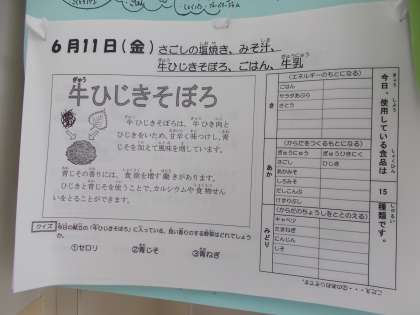 6月11日(金) さごしの塩焼き、みそ汁、
牛ひじきそぼろ、ごはん、牛乳
牛ひじきそぼろ
牛ひじきそぼろは、牛ひき肉と
ひじきをいため、甘辛く味つけし、青
じそを加えて風味を増しています。
青じその香りには、食欲を増す働きがあります。
ひじきと青じそを使うことで、カルシウムや食物せん
いをとることができます。
クイズ 今日の献立の「牛ひじきそぼろ」に入っている、良い香りのする野菜はどれでしょう
か。
①セロリ ②青じそ ③青ねぎ
今日、使用している食品は 15 種類です。
(エネルギーのもとになる)
き
ごはん
サラダあぶら
さとう
(からだをつくるもとになる)
あか
ぎゅうにゅう ぎゅうひきにく
さごし ひじき
あかみそ
しろみそ
だしこんぶ
けずりぶし
(からだのちょうしをととのえる)
みどり
キャベツ
たまねぎ
にんじん
しそ